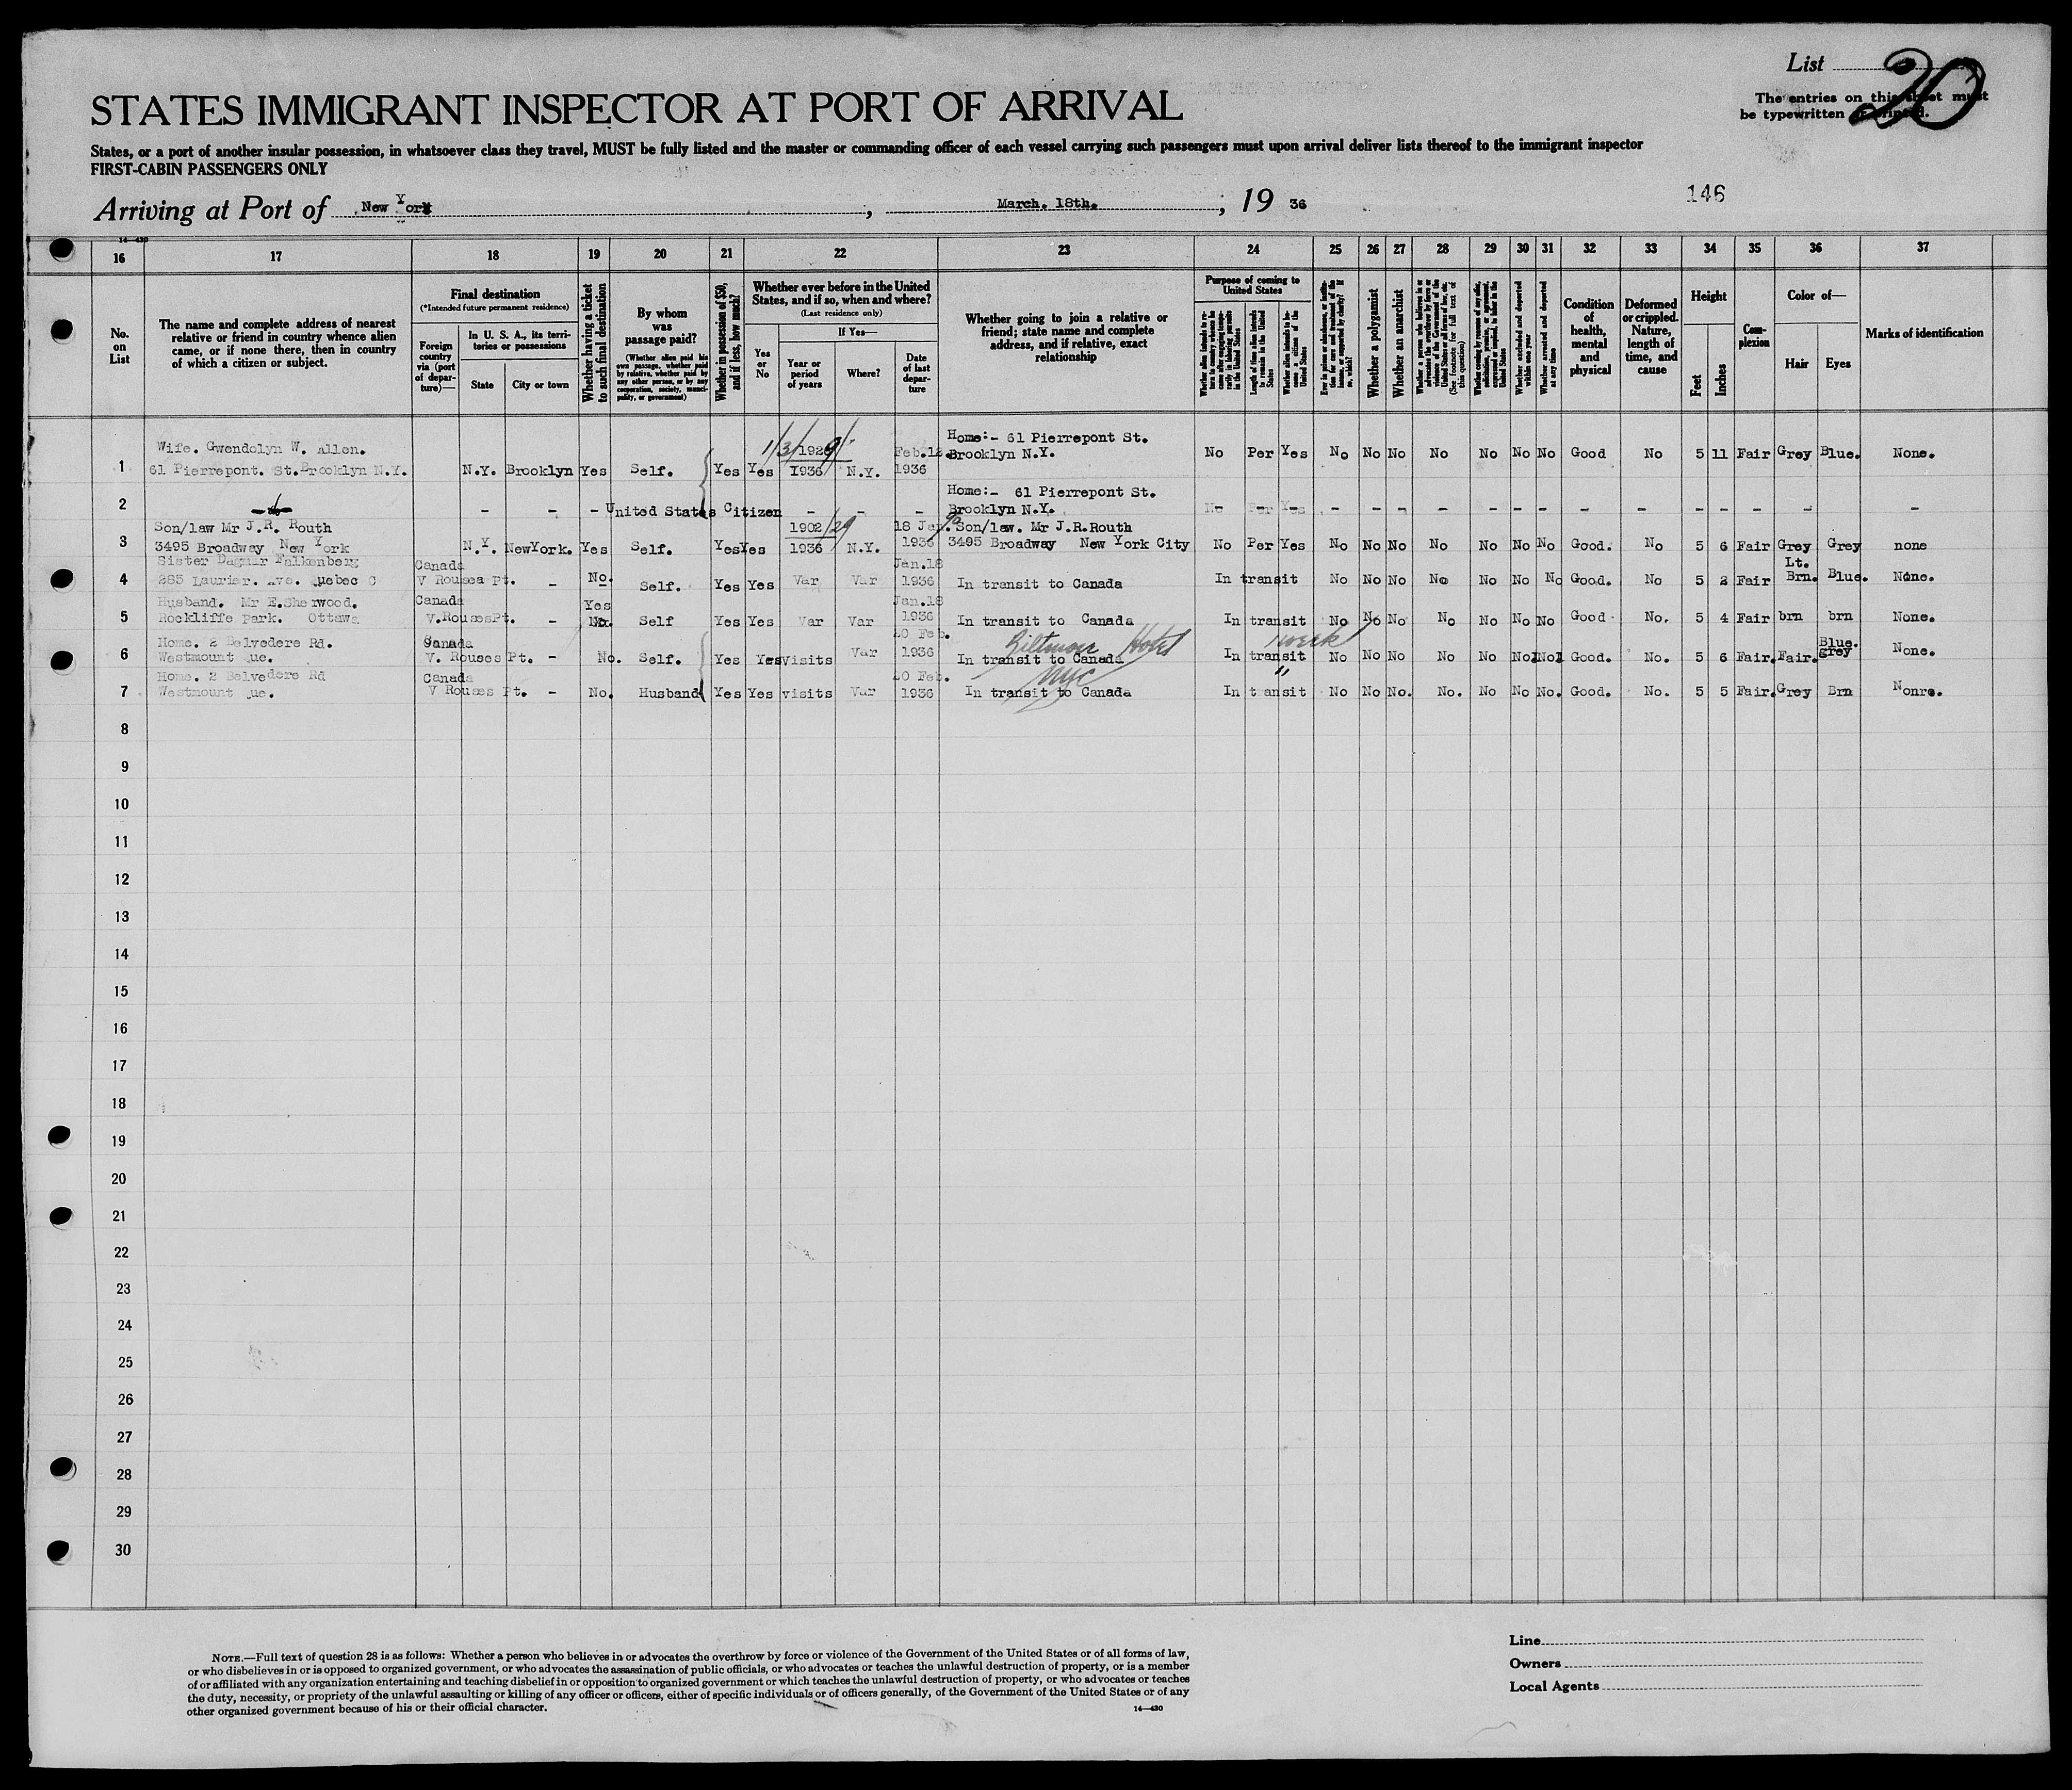 List 20
The entries on this sheet must
be typewritten or printed.
STATES IMMIGRANT INSPECTOR AT PORT OF ARRIVAL
States, or a port of another insular possession, in whatsoever class they travel, MUST be fully listed and the master or commanding officer of each vessel carrying such passengers must upon arrival deliver lists thereof to the immigrant inspector
FIRST-CABIN PASSENGERS ONLY
Arriving at Port of New York, March. 18th.; 19 36
146
14—430
16 17 18 19 20 21 22 23 24 25 26 27 28 29 30 31 32 33 34 35 36 37
No.
on
List
The name and complete address of nearest
relative or friend in country whence alien
came, or if none there, then in country
of which a citizen or subject.
Final destination
(*Intended future permanent residence)
Foreign
country
via (port
of depar-
ture)—
In U. S. A., its terri-
tories or possessions
State
City or town
Whether having a ticket
to such final destination
By whom
was
passage paid?
(Whether alien paid his
own passage, whether paid
by relative, whether paid by
any other person, or by any
corporation, society, munici-
pality, or government)
Whether in possession of $50,
and if less, how much?
Whether ever before in the United
States, and if so, when and where?
(Last residence only)
Yes
or
No
If Yes—
Year or
period
of years
Where?
Date
of last
depar-
ture
Whether going to join a relative or
friend; state name and complete
address, and if relative, exact
relationship
Purpose of coming to
United States
Whether alien intends to re-
turn to country whence he
came after engaging tempo-
rarily in laboring pursuits
in the United States
Length of time alien intends
to remain in the United
States
Whether alien intends to be-
come a citizen of the
United States
Ever in prison or almshouse, or institu-
tion for care and treatment of the
insane, or supported by charity? If
so, which?
Whether a polygamist
Whether an anarchist
(See footnote for full text of
this question)
Whether excluded and deported
within one year
Whether arrested and deported
at any time
Condition
of
health,
mental
and
physical
Deformed
or crippled.
Nature,
length of
time, and
cause
Height
Feet
Inches
Com-
plexion
Color of—
Hair
Eyes
Marks of identification
1 Wife. Gwendolyn W. Allen.
61 Pierrepont. St.Brooklyn N.Y. N.Y. Brooklyn Yes Self. Yes Yes 1/3/1929/- 1936 N.Y. Feb.12. 1936 Home:- 61 Pierrepont St.
Brooklyn N.Y. No Per Yes No No No No No No No Good No 5 11 Fair Grey Blue. None.
2 -do- - - - United States Citizen - - - Home:- 61 Pierrepont St.
Brooklyn N.Y. No Per Yes - - - - - - - - - - - - - - -
3 Son/law Mr J.R. Routh
3495 Broadway New York N.Y. NewYork. Yes Self. Yes Yes 1902/29 1936 N.Y. 18 Jan. 1936 Son/law. Mr J.R.Routh
3495 Broadway New York City No Per Yes No No No No No No No Good. No 5 6 Fair Grey Grey none
4 Sister Dagmar Falkenberg
285 Laurier. Ave. Quebec C Canada
V Rouses Pt. - No. Self. Yes Yes Var Var Jan.18 1936 In transit to Canada In transit No No No No No No No Good. No 5 2 Fair Lt. Brn. Blue. None.
5 Husband. Mr E.Sherwood.
Rockliffe Park. Ottawa Canada
V.RousesPt. - Yes No. Self Yes Yes Var Var Jan.18 1936 In transit to Canada In transit No No No No No No No Good No. 5 4 Fair brn brn None.
6 Home. 2 Belvedere Rd.
Westmount Que. Canada
V. Rouses Pt. - No. Self. Yes Yes Visits Var 20 Feb. 1936 In transit to Canada Biltmore Hotel NYC In transit week No No No No No No No Good. No. 5 6 Fair. Fair. Blue. grey None.
7 Home. 2 Belvedere Rd
Westmount Que. Canada
V Rouses Pt. - No. Husband Yes Yes visits Var 20 Feb. 1936 In transit to Canada In transit " No No No. No. No No No. Good. No. 5 5 Fair. Grey Brn Nonre.
8
9
10
11
12
13
14
15
16
17
18
19
20
21
22
23
24
25
26
27
28
29
30
NOTE.—Full text of question 28 is as follows: Whether a person who believes in or advocates the overthrow by force or violence of the Government of the United States or of all forms of law,
or who disbelieves in or is opposed to organized government, or who advocates the assassination of public officials, or who advocates or teaches the unlawful destruction of property, or is a member
of or affiliated with any organization entertaining and teaching disbelief in or opposition to organized government or which teaches the unlawful destruction of property, or who advocates or teaches
the duty, necessity, or propriety of the unlawful assaulting or killing of any officer or officers, either of specific individuals or of officers generally, of the Government of the United States or of any
other organized government because of his or their official character.
14—430
Line
Owners
Local Agents